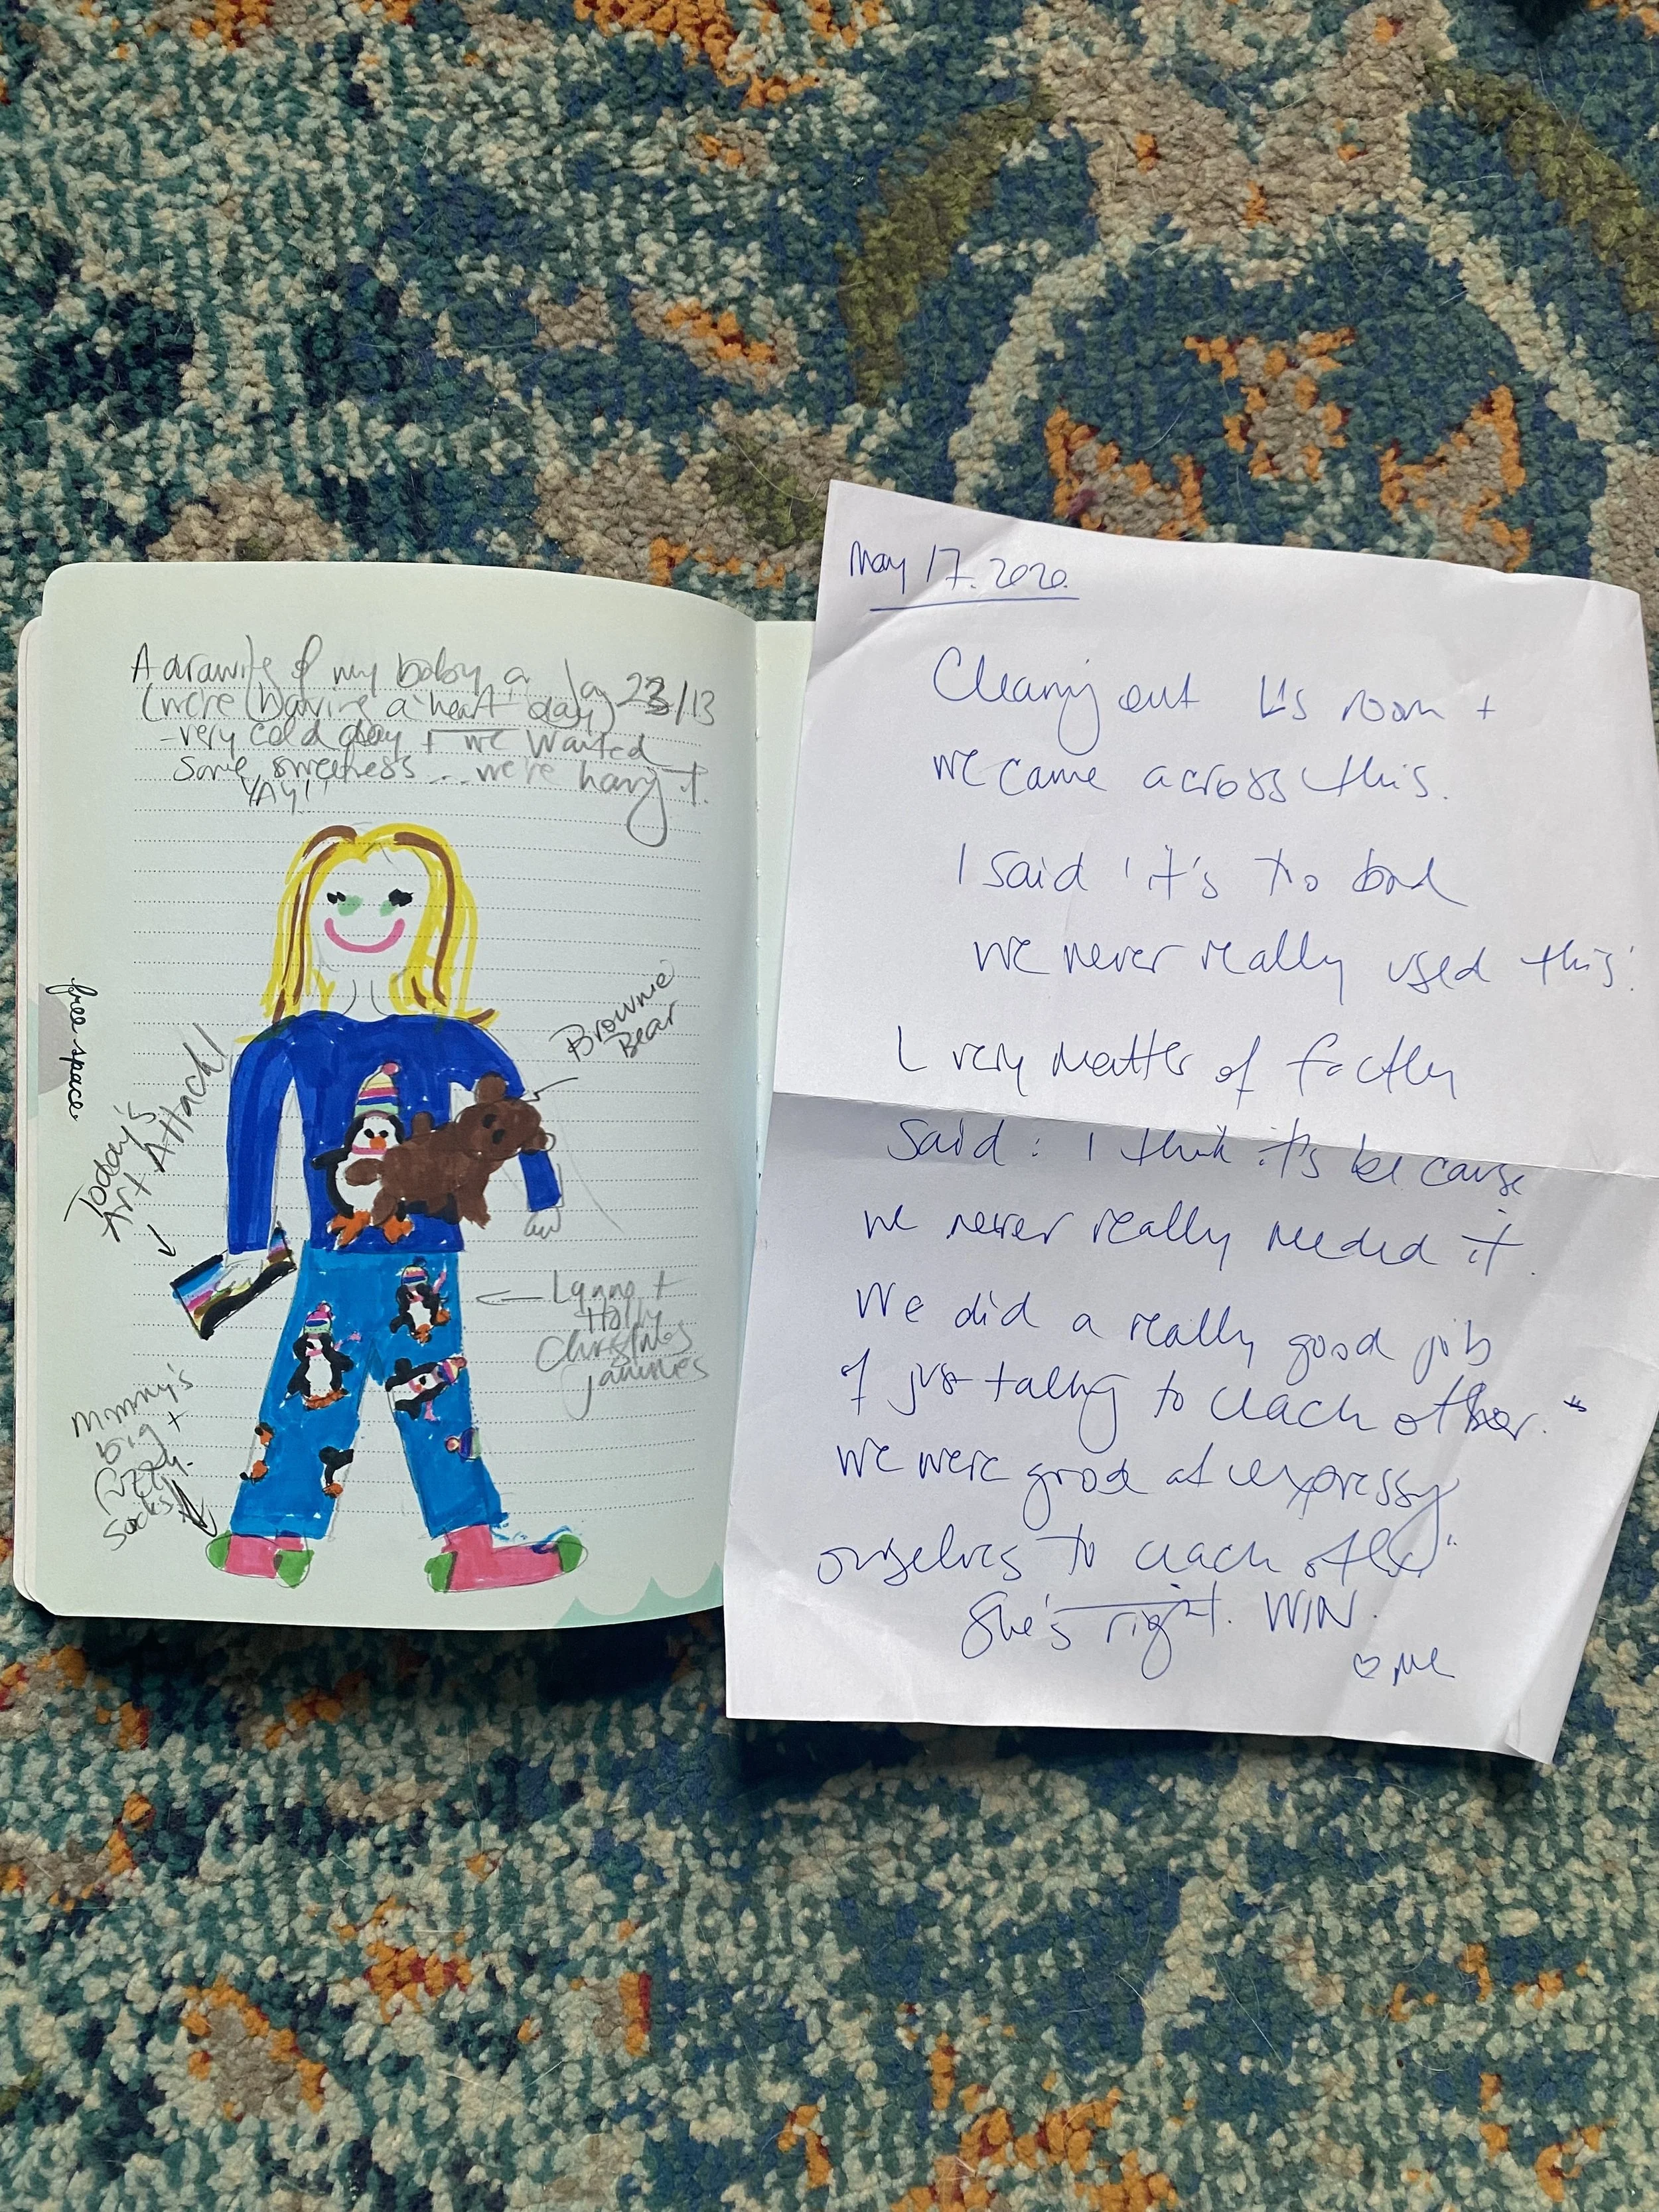 A drawing of my baby on Jan 23/13
(we're having a "heart day)
- very cold day + we wanted
some sweetness... we're having it.
YAY!!
free space
Brownie
Bear
Today's
Art Attack!
Lynno +
Holly
Christmas
Jammies
Mommy's
big +
fuzzy
socks!
May 17. 2020.
Cleaning out L's room +
we came across this.
I said 'it's too bad
we never really used this'.
L very matter of factly
said: I think it's because
we never really needed it.
We did a really good job
of just talking to each other."
We were good at expressing
ourselves to each other"
She's right. WIN.
♡ Me